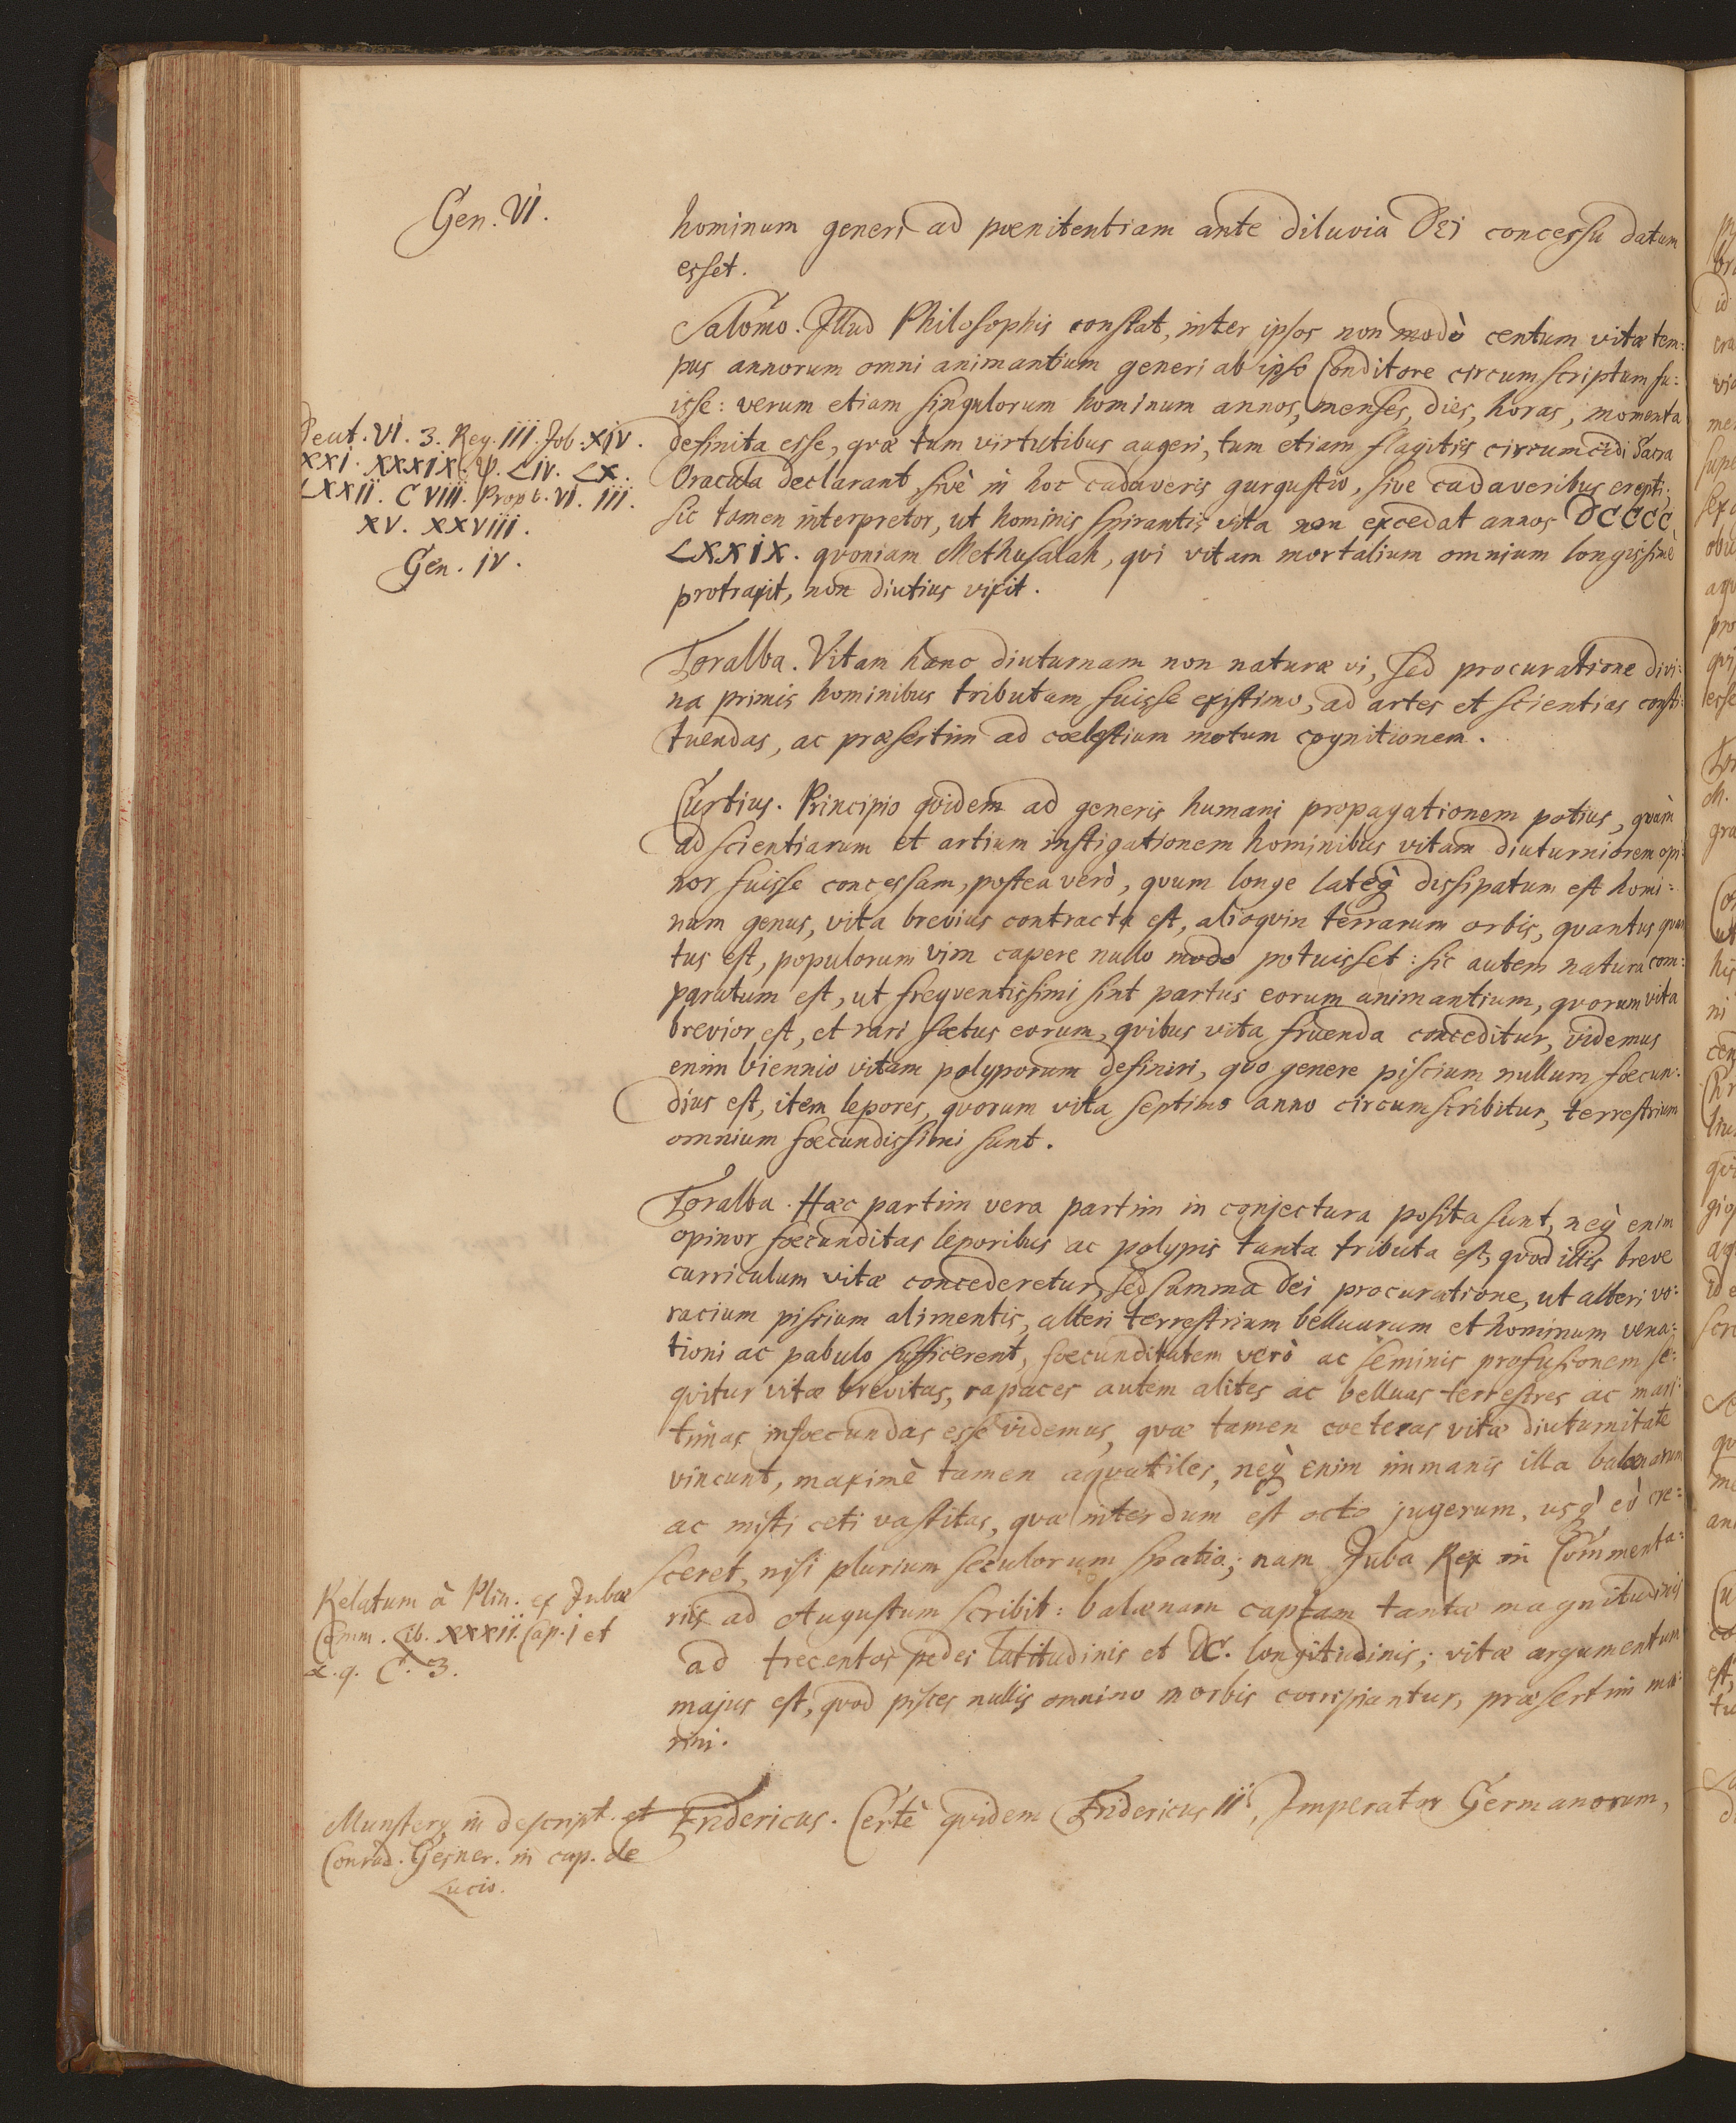 Gen. VI.
hominum generi ad poenitentiam ante diluvia Dei concessu datum
esset.
Salomo. Illud Philosophis constat, inter ipsos non modò centum vitæ tem:
pus annorum omni animantium generi ab ipso Conditore circumscriptum fu:
isse: verum etiam singulorum hominum annos, menses, dies, horas, momenta
Deut. VI. 3. Reg. III. Job. XIV.
XXI. XXXIX. ψ. LIV. LX.
LXXII. CVIII. Prov. VI. III.
XV. XXVIII.
Gen. IV.
definita esse, quæ tum virtutibus augeri, tum etiam flagitiis circumcidi Sacra
Oracula declarant, sivè in hoc cadaveris gurgustio, sive cadaveribus erepti;
sic tamen interpretor, ut hominis spirantis vita non excedat annos DCCCC
LXXIX. qvoniam Methusalah, qvi vitam mortalium omnium longissimè
protraxit, non diutius vixit.
Toralba. Vitam hanc diuturnam non naturæ vi, sed procuratione divi:
na primis hominibus tributam fuisse existimo, ad artes et scientias consti:
tuendas, ac præsertim ad coelestium motum cognitionem.
Curtius. Principio qvidem ad generis humani propagationem potius, qvàm
ad scientiarum et artium instigationem hominibus vitam diuturniorem opi:
nor fuisse concessam, postea verò, qvum longe lateq̀ dissipatum est homi:
num genus, vita brevius contracta est, alioqvin terrarum orbis, qvantus qvan
tus est, populorum vim capere nullo modo potuisset: sic autem natura com:
paratum est, ut freqventissimi sint partus eorum animantium, qvorum vita
brevior est, et rari foetus eorum, qvibus vita fruenda conceditur, videmus
enim biennio vitam polyporum definiri, quo genere piscium nullum foecun:
dius est, item lepores, qvorum vita septimo anno circumscribitur, terrestrium
omnium foecundissimi sunt.
Toralba. Hæc partim vera partim in conjectura posita sunt, neq̀ enim
opinor foecunditas leporibus ac polypis tanta tributa est, qvod illis breve
curriculum vitæ concederetur, sed summa Dei procuratione, ut alteri vo:
racium piscium alimentis, alteri terrestrium belluarum et hominum vena:
tioni ac pabulo sufficerent, foecunditatem verò ac seminis profusionem se:
qvitur vitæ brevitas, rapaces autem alites ac belluas terrestres ac mari:
timas infoecundas esse videmus, quæ tamen coeteras vitæ diuturnitate
vincunt, maximè tamen aqvatiles, neq̀ enim immanis illa balænarum
ac misti ceti vastitas, quæ interdum est octo jugerum, usq̀ eò cre:
sceret, nisi plurium seculorum spatio; nam Juba Rex in Commenta:
Relatum à Plin. ex Jubæ
Comm. Lib. XXXII. Cap. I et
x. q. C. 3.
riis ad Augustum scribit: balænam captam tantæ magnitudinis
ad trecentos pedes latitudinis et DC. longitudinis; vitæ argumentum
majus est, qvod pisces nullis omnino morbis corripiantur, præsertim ma:
rini.
Munsterg in descript. et
Conrad. Gesner. in cap. de
Lucio.
Fridericus. Certè qvidem Fridericus II, Imperator Germanorum,